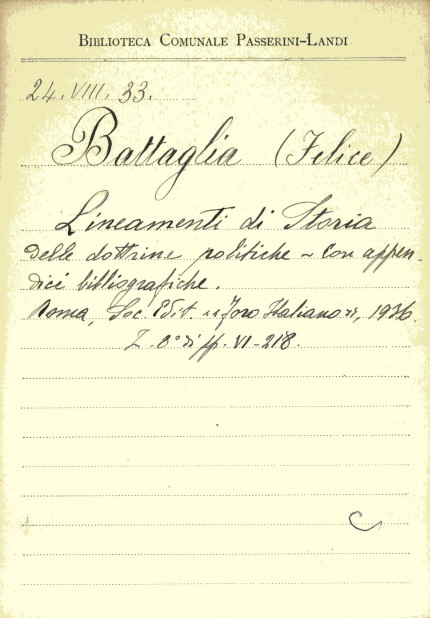 BIBLIOTECA COMUNALE PASSERINI-LANDI
24. VIII. 33.
Battaglia (Felice)
Lineamenti di Storia
delle dottrine politiche - Con appen-
dici bibliografiche.
Roma, Soc. Edit. "Foro Italiano", 1936.
8° di pp. VI-218.